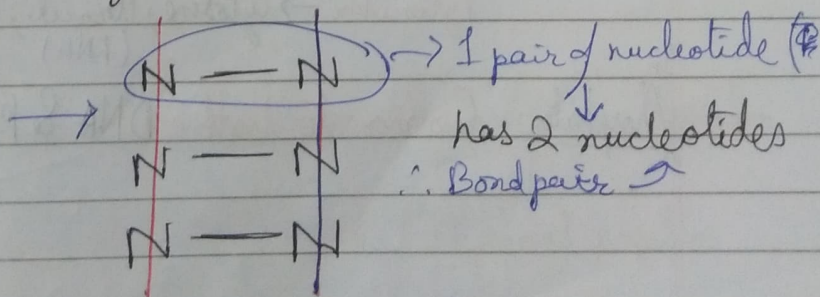 N — N → 1 pair of nucleotide (
→ ↓
has 2 nucleotides
N — N
∴ Bond pair
N — N